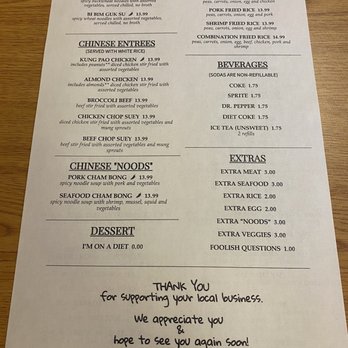 served, chilled, no broth
BI BIM GUK SU 13.99
spicy wheat noodles with assorted vegetables,
served chilled, no broth
CHINESE ENTREES
(SERVED WITH WHITE RICE)
KUNG PAO CHICKEN 13.99
includes peanuts** diced chicken stir fried with
assorted vegetables
ALMOND CHICKEN 13.99
includes almonds** diced chicken stir fried with
assorted vegetables
BROCCOLI BEEF 13.99
beef stir fried with assorted vegetables
CHICKEN CHOP SUEY 13.99
diced chicken stir fried with assorted vegetables and
mung sprouts
BEEF CHOP SUEY 13.99
beef stir fried with assorted vegetables and mung
sprouts
CHINESE "NOODS"
PORK CHAM BONG 13.99
spicy noodle soup with pork and vegetables
SEAFOOD CHAM BONG 13.99
spicy noodle soup with shrimp, mussel, squid and
vegetables
DESSERT
I'M ON A DIET 0.00
peas, carrots, onion, egg and chicken
PORK FRIED RICE 13.99
peas, carrots, onion, egg and pork
SHRIMP FRIED RICE 13.99
peas, carrots, onion, egg and shrimp
COMBINATION FRIED RICE 14.99
peas, carrots, onion, egg, beef, chicken, pork and
shrimp
BEVERAGES
(SODAS ARE NON-REFILLABLE)
COKE 1.75
SPRITE 1.75
DR. PEPPER 1.75
DIET COKE 1.75
ICE TEA (UNSWEET) 1.75
2 refills
EXTRAS
EXTRA MEAT 3.00
EXTRA SEAFOOD 3.00
EXTRA RICE 2.00
EXTRA EGG 2.00
EXTRA "NOODS" 3.00
EXTRA VEGGIES 3.00
FOOLISH QUESTIONS 1.00
THANK YOU
for supporting your local business.
We appreciate you
&
hope to see you again soon!